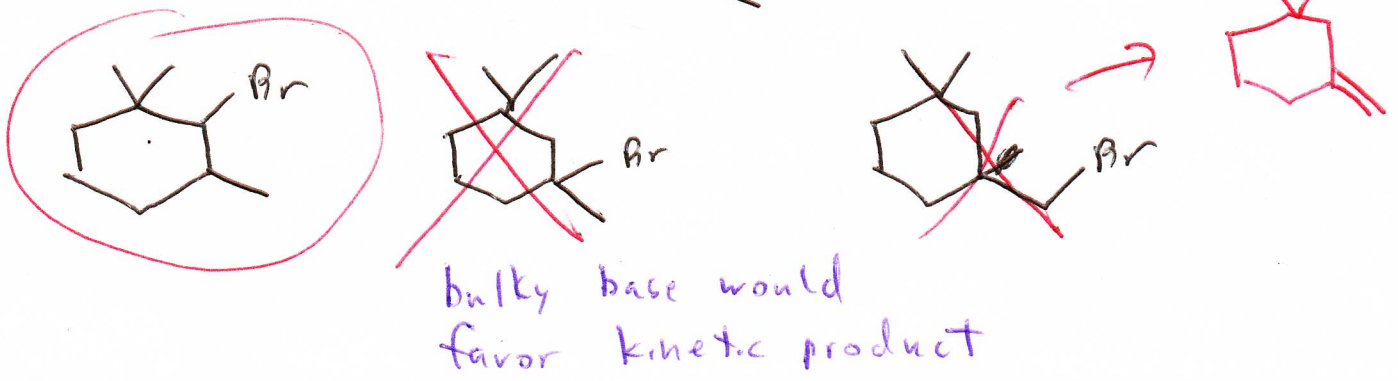 Br
Br
Br
bulky base would
favor kinetic product